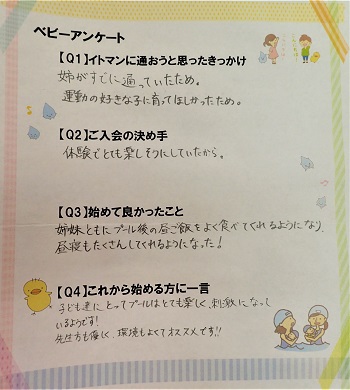 ベビーアンケート
【Q1】イトマンに通おうと思ったきっかけ
姉がすでに通っていたため。
運動の好きな子に育ってほしかったため。
【Q2】ご入会の決め手
体験でとても楽しそうにしていたから。
【Q3】始めて良かったこと
姉妹ともにプール後の昼ご飯をよく食べてくれるようになり、
昼寝もたくさんしてくれるようになった!
【Q4】これから始める方に一言
子ども達にとってプールはとても楽しく、刺激になって
いるようです!
先生方も優しく、環境もよくてオススメです!!